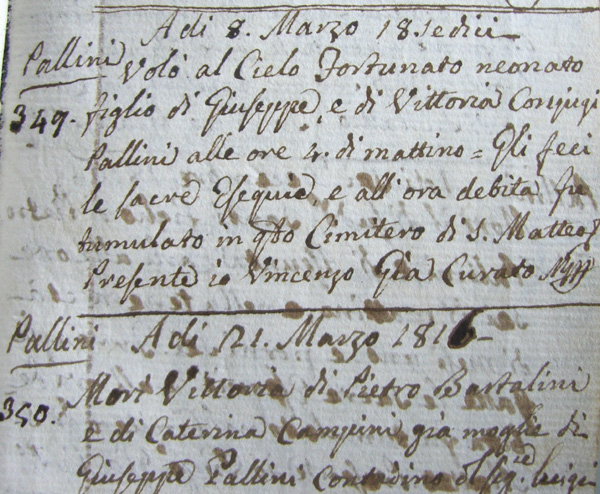 Adi 8. Marzo 18.sedici
Pallini
Volò al Cielo Fortunato neonato
349. figlio di Giuseppe, e di Vittoria Conjugi
Pallini alle ore 4. di mattino = Gli feci
le sacre Esequie, e all'ora debita fu
tumulato in qto Cimitero di S. Matteo
Presente io Vincenzo Già Curato
Pallini Adi 21. Marzo 1816
350. Morì Vittoria di Pietro Bartalini
e di Caterina Campini già moglie di
Giuseppe Pallini Contadino del Sig. Luigi